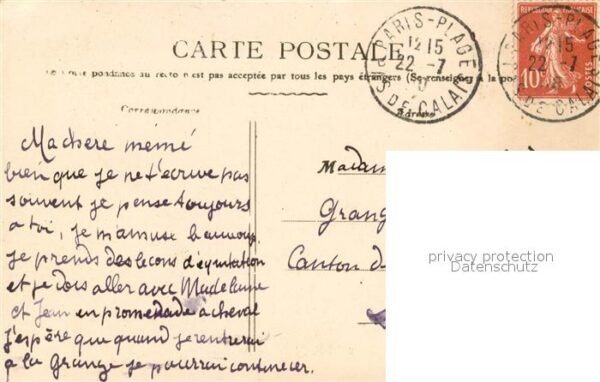 CARTE POSTALE
pondance au recto n'est pas acceptée par tous les pays étrangers (Se renseigner à la pos
Correspondance
Adresse
PARIS-PLAGE
12 15
22 -7
PAS DE CALAIS
RÉPUBLIQUE FRANÇAISE
10
POSTES
PARIS-PLAGE
12 15
22 -7
DE CALAIS
Ma chere mémé
bien que je ne t'ecrive pas
souvent je pense toujours
a toi, je m'amuse beaucoup
je prends des lecons d'equitation
et je dois aller avec Madelaine
et Jean en promenade a cheval
J'espère que quand je rentrerai
a la Grange je pourrai continuer.
Madam
Grang
Canton d
privacy protection
Datenschutz